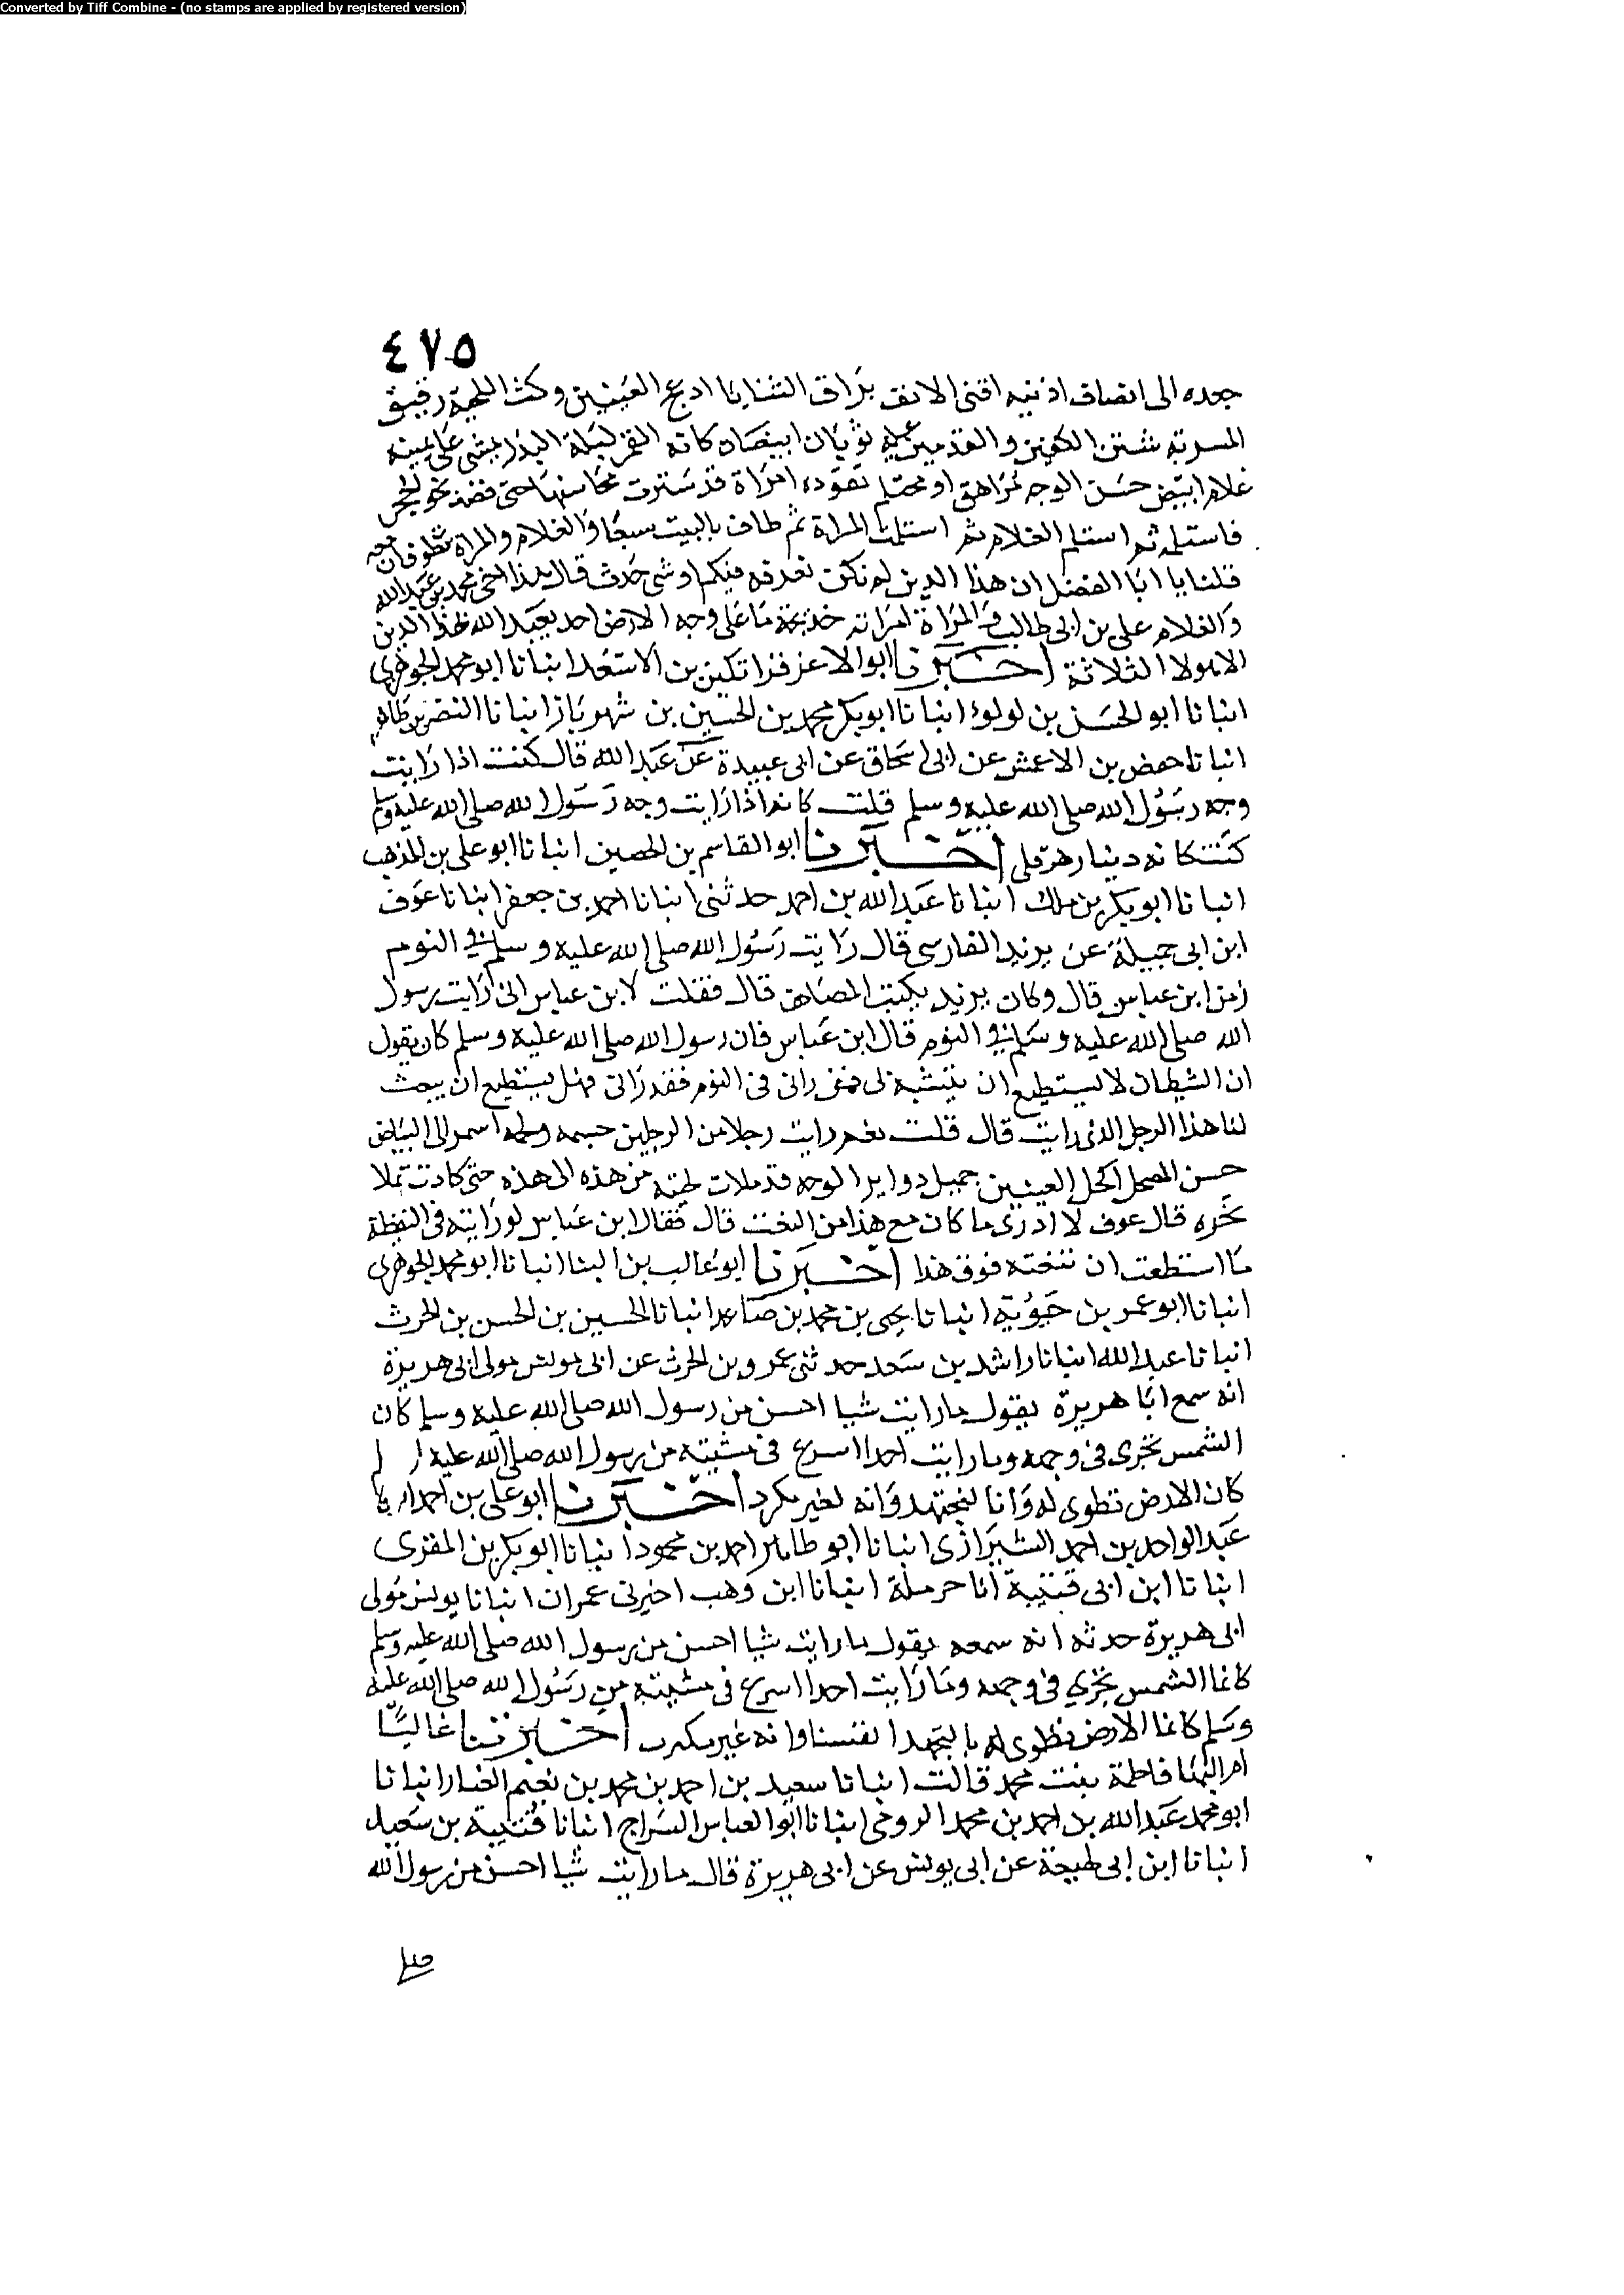 Converted by Tiff Combine - (no stamps are applied by registered version)
٤٧٥
جعده الى انصاف اذنيه اقنى الانف براق الثنايا ادعج العينين وكث اللحية رقيق
المسربه شثن الكفين والقدمين عليه ثوبان ابيضان كانه القمر ليلة البدر يمشى على يمينه
غلام ابيض حسن الوجه مراهق او محتلم تقوده امراة قد سترت محاسنها حتى قصد نحو الحجر
فاستلمه ثم استلم الغلام ثم استلمت المراة ثم طاف بالبيت سبعا والغلام والمراة يطوفان معه
قلنا يا ابا الفضل ان هذا الدين لم نكن نعرفه فيكم او شى حدث قال هذا ابن اخى محمد بن عبد الله
والغلام على بن ابى طالب والمراة امراته خديجة ما على وجه الارض احد يعبد الله بهذا الدين
الا هولا الثلاثة اخبرنا ابو الاعز قراتكين بن الاسعد انبانا ابو محمد الجوهرى
انبانا ابو الحسن بن لولوء انبانا ابو بكر محمد بن الحسين بن شهريار انبانا النضر بن طاهر
انبانا حفص بن الاعمش عن ابى اسحاق عن ابى عبيدة عن عبد الله قال كنت اذا رايت
وجه رسول الله صلى الله عليه وسلم قلت كانه اذا رايت وجه رسول الله صلى الله عليه وسلم
كنت كانه دينار هرقلى اخبرنا ابو القاسم بن الحصين انبانا ابو على بن المذهب
انبانا ابو بكر بن ملك انبانا عبد الله بن احمد حدثنى انبانا احمد بن جعفر انبانا عوف
ابن ابى جميلة عن يزيد الفارسى قال رايت رسول الله صلى الله عليه وسلم فى النوم
زمن ابن عباس قال وكان يزيد يكتب المصاحف قال فقلت لابن عباس انى رايت رسول
الله صلى الله عليه وسلم فى النوم قال ابن عباس فان رسول الله صلى الله عليه وسلم كان يقول
ان الشيطان لا يستطيع ان يتشبه بى فمن رانى فى النوم فقد رانى فهل يستطيع ان ينعت
لنا هذا الرجل الذى رايت قال قلت نعم رايت رجلا من الرجلين جسمه ولحمه اسمر الى البياض
حسن المضحك اكحل العينين جميل دواير الوجه قد ملات لحيته من هذه الى هذه حتى كادت تملا
نحره قال عوف لا ادرى ما كان مع هذا من النعت قال فقال ابن عباس لو رايته فى اليقظة
ما استطعت ان تنعته فوق هذا اخبرنا ابو غالب بن البنا انبانا ابو محمد الجوهرى
انبانا ابو عمر بن حيوية انبانا يحيى بن محمد بن صاعد انبانا الحسين بن الحسن بن الحرث
انبانا عبد الله انبانا راشد بن سعد حدثنى عمرو بن الحرث عن ابى يونس مولى ابى هريرة
انه سمع ابا هريرة يقول ما رايت شيا احسن من رسول الله صلى الله عليه وسلم كان
الشمس تجرى فى وجهه وما رايت احدا اسرع فى مشيته من رسول الله صلى الله عليه
كان الارض تطوى له وانا لنجتهد وانه لغير مكرد اخبرنا ابو على بن احمد
عبد الواحد بن احمد الشيرازى انبانا ابو طاهر احمد بن محمود انبانا ابو بكر بن المقرى
انبانا ابن ابى قتيبة انا حرملة انبانا ابن وهب اخبرنى عمران انبانا يونس مولى
ابى هريرة حدثه انه سمعه يقول ما رايت شيا احسن من رسول الله صلى الله عليه وسلم
كانما الشمس تجري فى وجهه وما رايت احدا اسرع فى مشيته من رسول الله صلى الله عليه
وسلم كانما الارض تطوى له انا لنجهد انفسنا وانه غير مكرب اخبرتنا غاليتا
ام البها فاطمة بنت محمد قالت انبانا سعيد بن احمد بن محمد بن نعيم العيار انبانا
ابو محمد عبد الله بن احمد بن محمد الرومى انبانا ابو العباس السراج انبانا قتيبة بن سعيد
انبانا ابن ابى طيحة عن ابى يونس عن ابى هريرة قال ما رايت شيا احسن من رسول الله
صلى